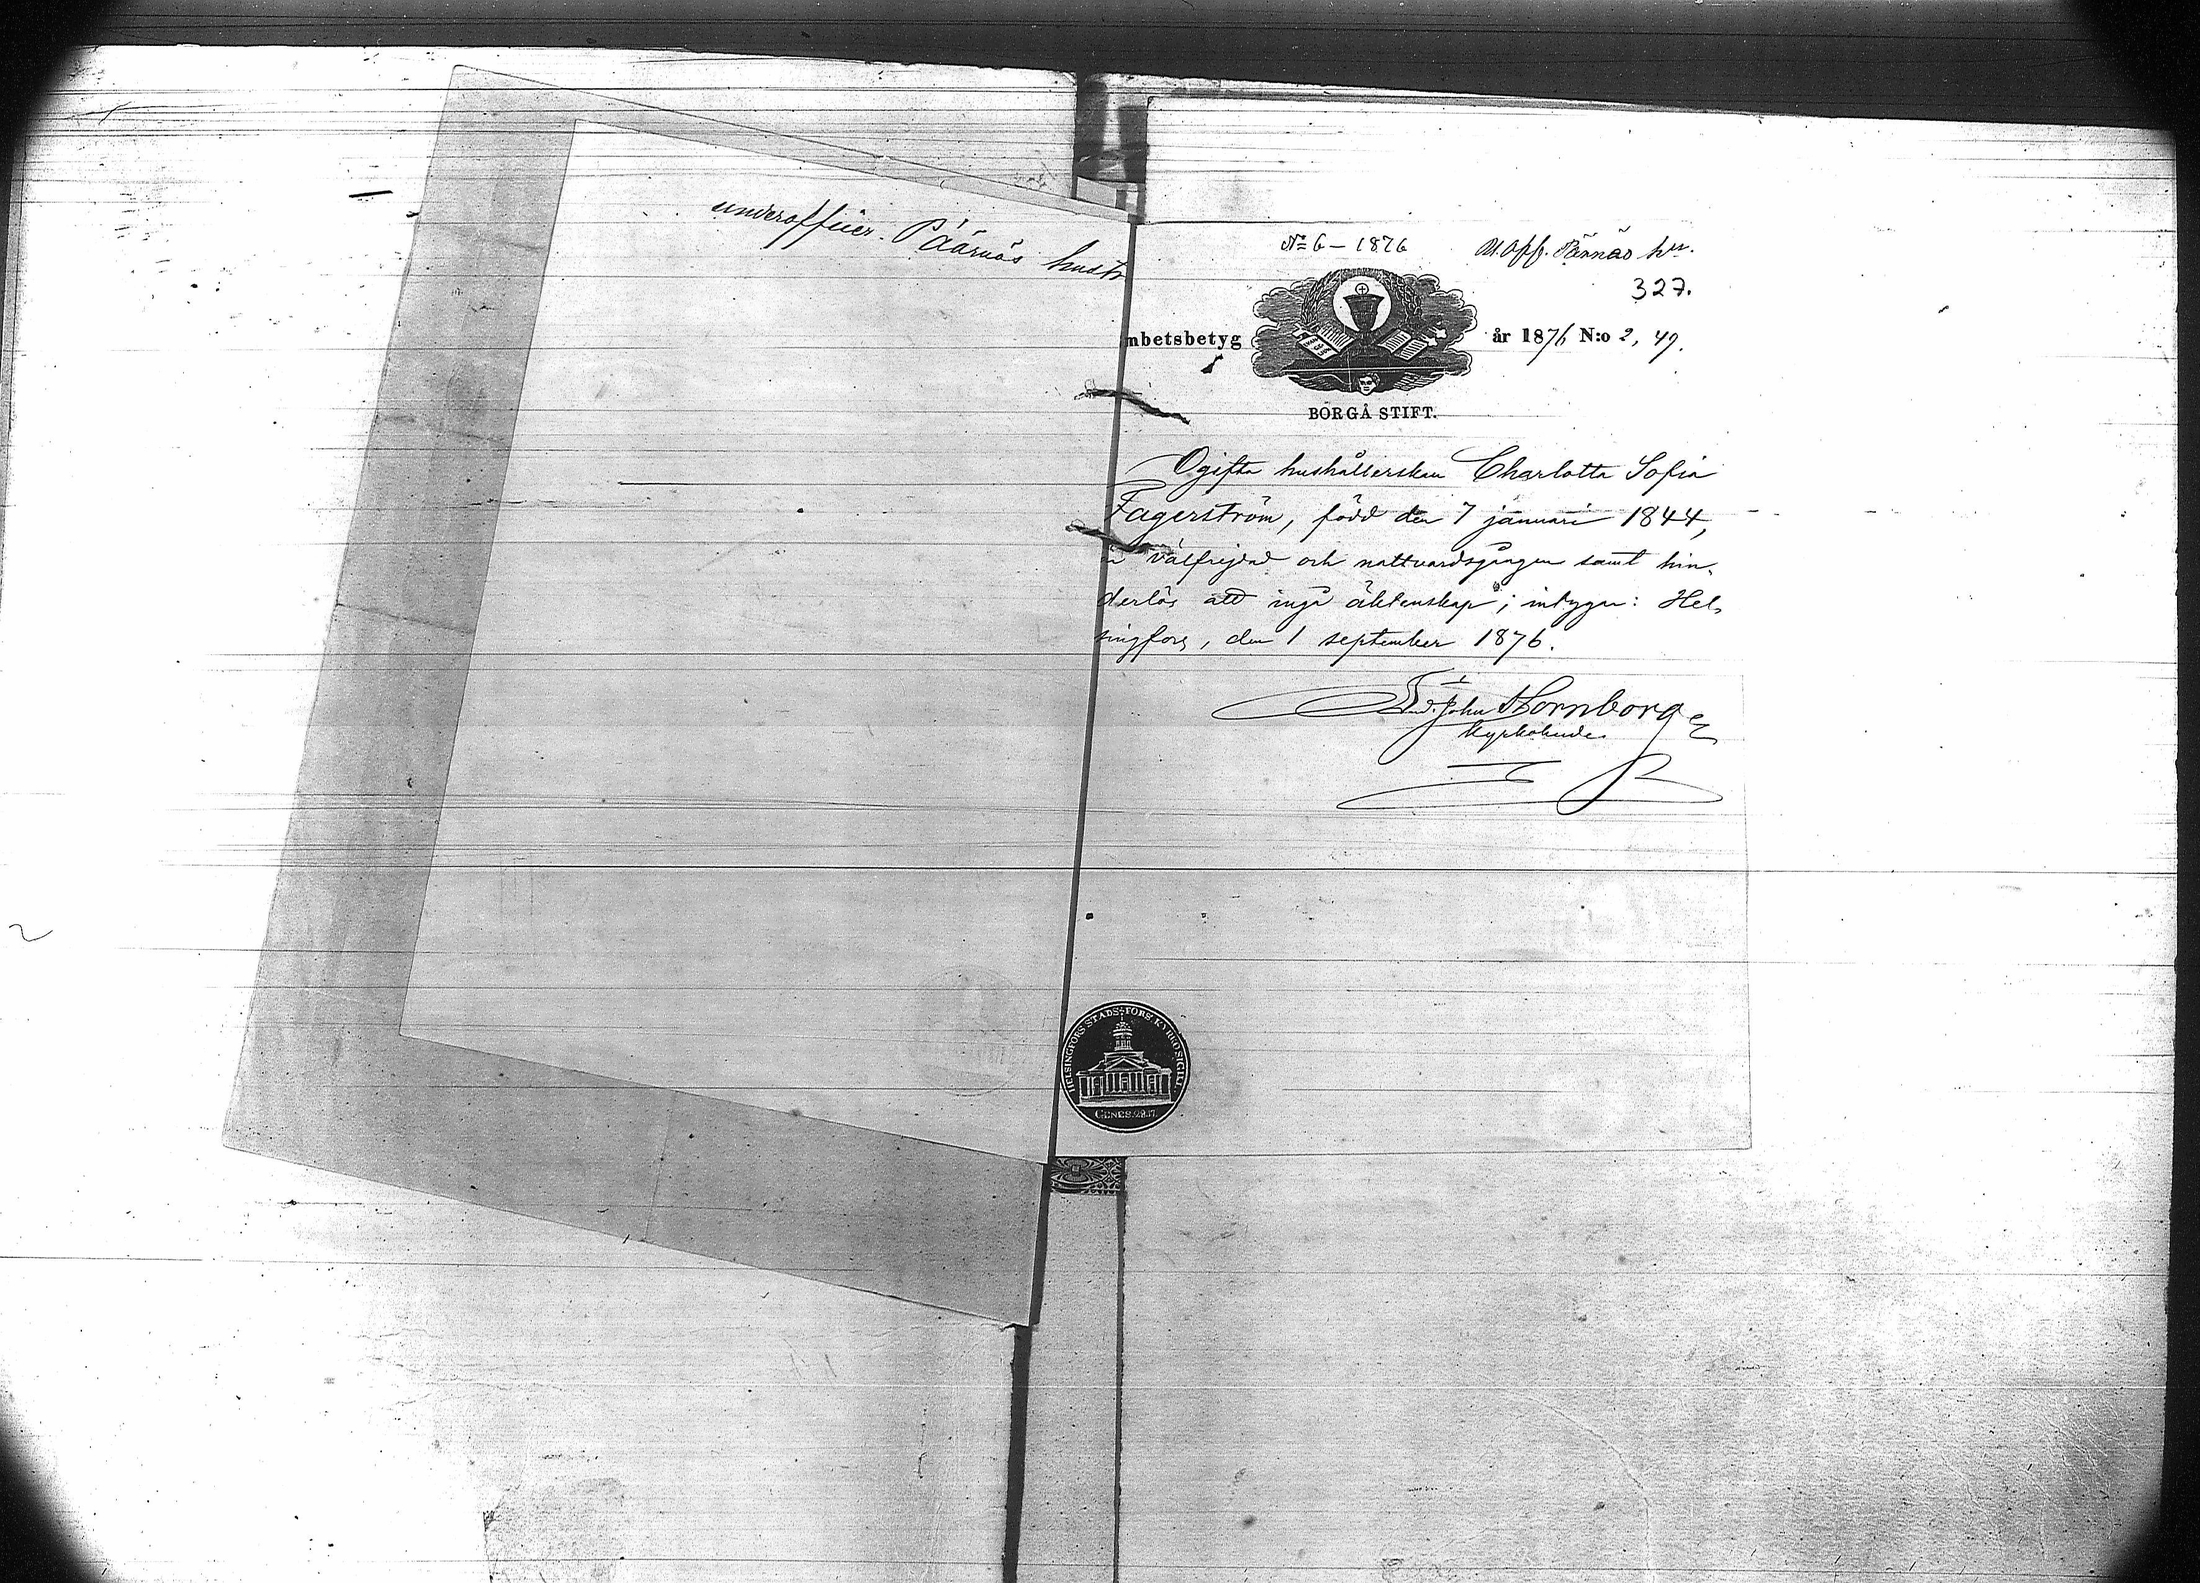 underofficer. Päärnäs hustr
No 6 – 1876
U.Off. Pärnäs hu.
327.
mbetsbetyg
år 1876 N:o 2, 49.
BORGÅ STIFT.
Ogifta hushållerskan Charlotta Sofia
Fagerström, född den 7 januari 1844,
är välfrejdad och nattvardsgången samt hin-
derlös att ingå äktenskap; intygar: Hel-
singfors, den 1 september 1876.
John Hornborg
Kyrkoherde
HELSINGFORS STADS FÖRS. KYRKO SIGILL
GENES. 28.17.